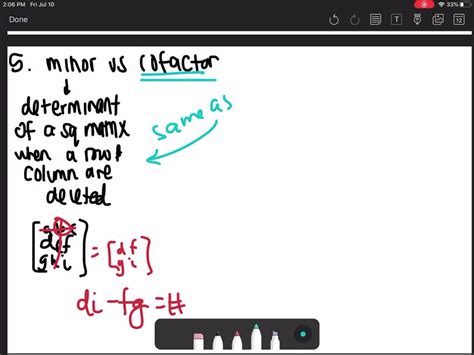 2:06 PM Fri Jul 10
33%
Done
T
12
5. minor vs cofactor
determinant
of a sq matrix
when a row &
column are
deleted
same as
def
ghi
=
d f
g i
di - fg = #